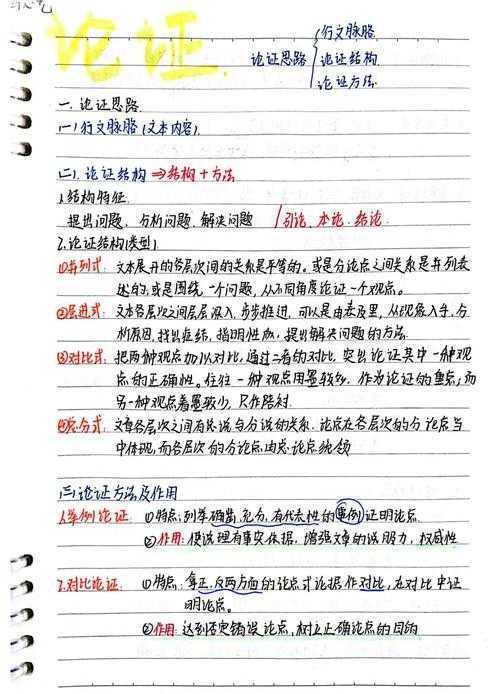 论证
论证思路
行文脉胳
论证结构
论证方法
一. 论证思路
(一) 行文脉胳 (文本内容)
(二). 论证结构 ⇒ 结构 + 方法
1.结构特征
提出问题, 分析问题, 解决问题 / 引论、本论、结论
2.论证结构(类型)
①并列式: 文本展开的各层次间的关系是平等的。或是分论点之间关系是并列表
述的;或是围绕一个问题,从不同角度论证一个观点。
②层进式: 文本各层次之间层层深入,步步推进,可以是由表及里,从现象入手,分
析原因,找出症结,指明性质,提出解决问题的方法.
③对比式: 把两种观点加以对比,通过二者的对比,突出论证其中一种观
点的正确性。往往一种观点用墨较多,作为论证的重点;而
另一种观点着墨较少,只作陪衬.
④总分式: 文章各层次之间有总说与分说的关系.论点在各层次的分论点当
中体现,而各层次的分论点由总论点统领
(三)论证方法及作用
1.举例论证: ①特点:列举确凿、充分,有代表性的事例证明论点.
②作用: 使说理有事实依据,增强文章的说服力,权威性
2.对比论证: ①特点: 拿正、反两方面的论点或论据作对比,在对比中证
明论点。
②作用: 达到否定错误论点,树立正确论点的目的